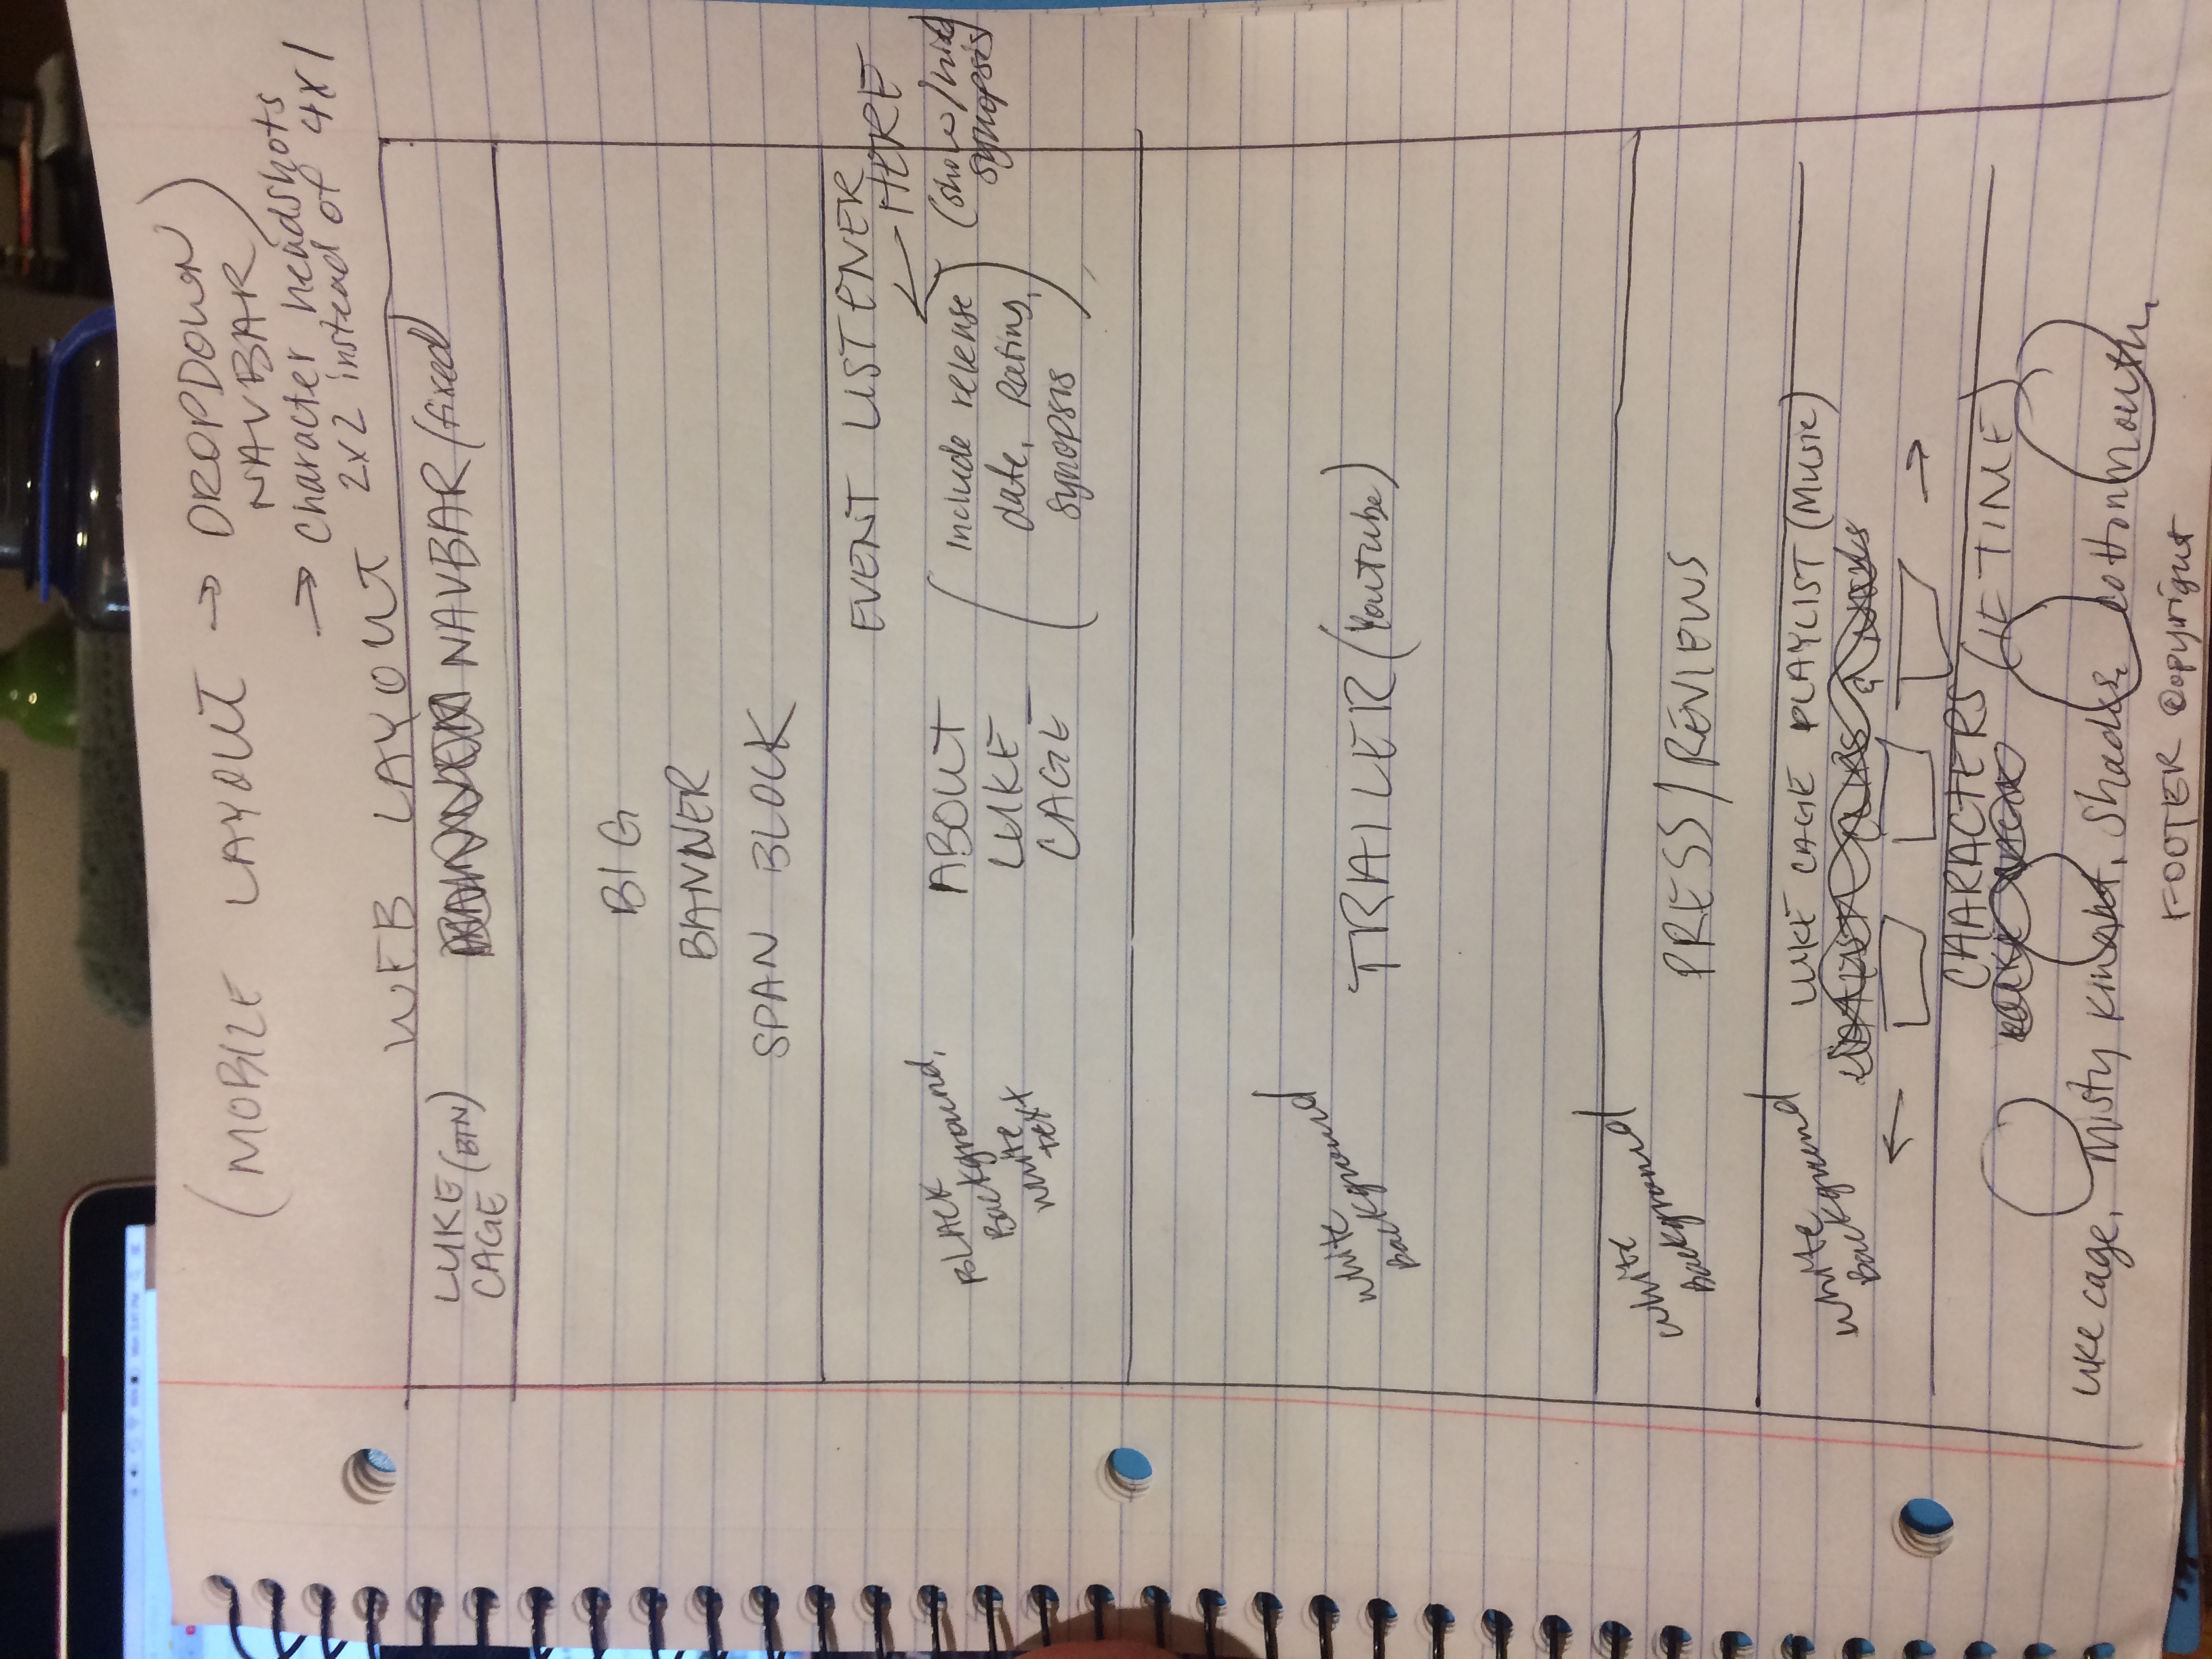 (MOBILE LAYOUT → DROPDOWN
NAVBAR)
→ Character headshots
2x2 instead of 4x1
WEB LAYOUT
LUKE
CAGE (BTN)
NAVBAR (fixed)
BIG
BANNER
SPAN BLOCK
EVENT LISTENER
← HERE
(show/hide
synopsis)
BLACK
Background,
white
text
ABOUT
LUKE
CAGE
(include release
date, Rating,
synopsis)
white
Background
TRAILER (Youtube)
white
Background
PRESS/REVIEWS
white
Background
LUKE CAGE PLAYLIST (Music)
← →
CHARACTERS (IF TIME)
Luke cage, Misty Knight, Shades, cottonmouth,
FOOTER ©opyright